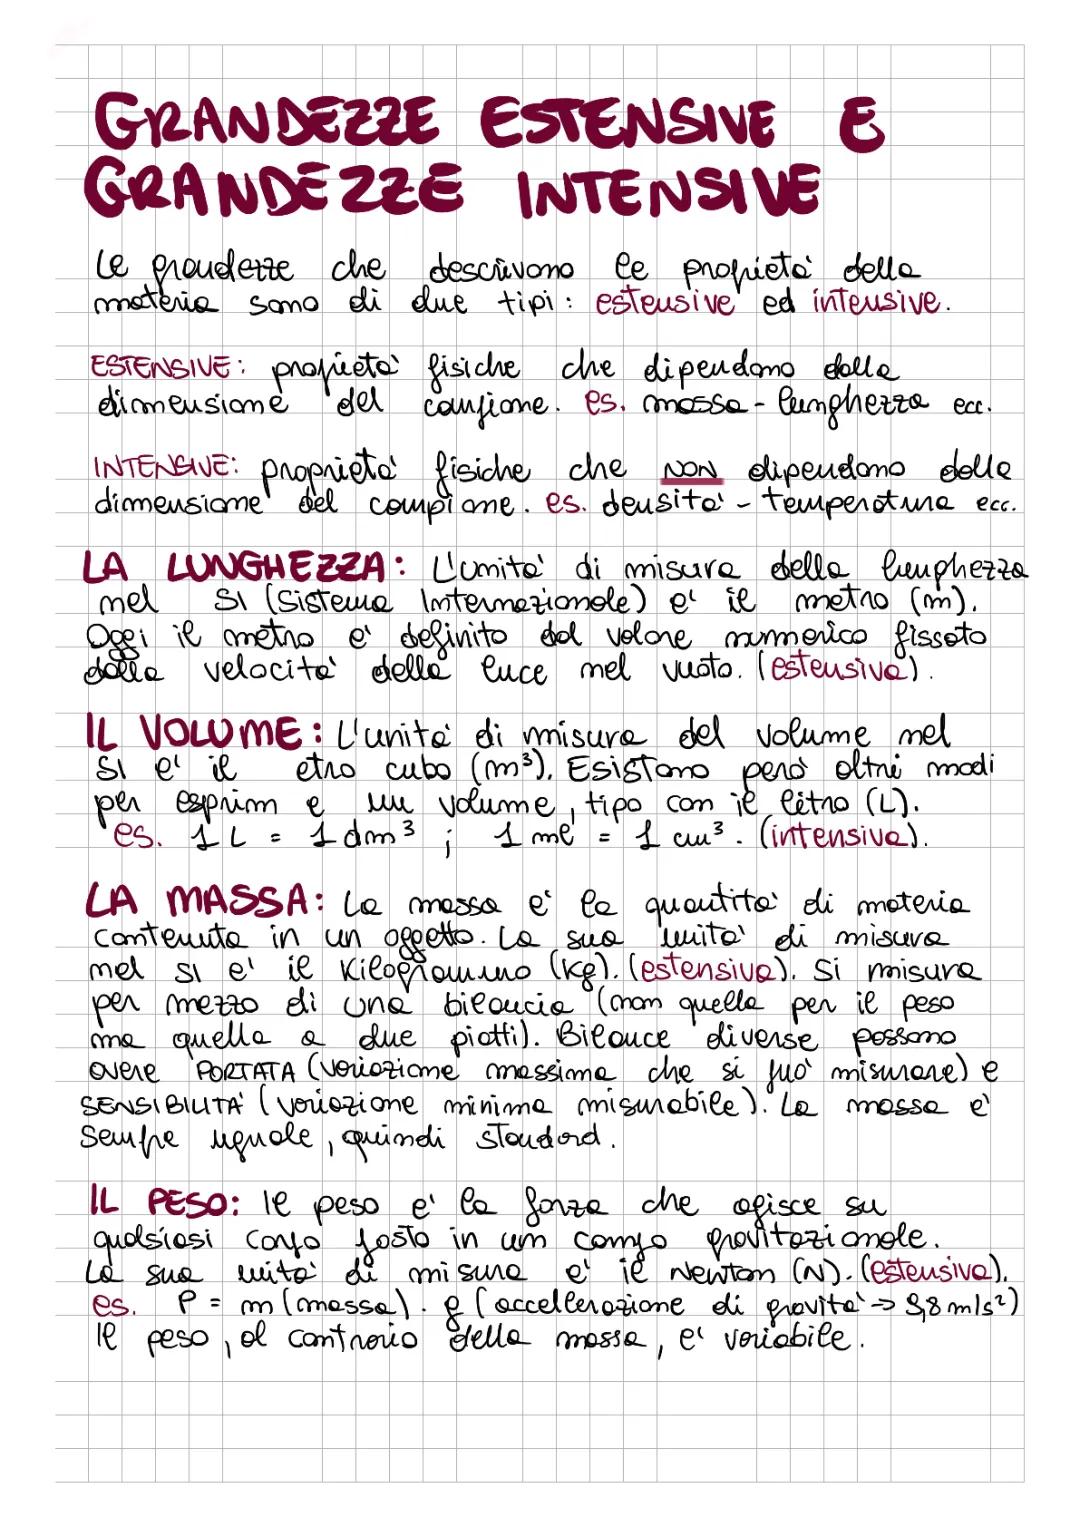 GRANDEZZE ESTENSIVE E
GRANDEZZE INTENSIVE
Le grandezze che descrivono le proprietà della
materia sono di due tipi: estensive ed intensive.
ESTENSIVE: proprietà fisiche che dipendono dalla
dimensione del campione. es. massa - lunghezza ecc.
INTENSIVE: proprietà fisiche che NON dipendono dalla
dimensione del campione. es. densità - temperatura ecc.
LA LUNGHEZZA: L'unità di misura della lunghezza
nel SI (Sistema Internazionale) è il metro (m).
Oggi il metro è definito dal valore numerico fissato
dalla velocità della luce nel vuoto. (estensiva).
IL VOLUME: L'unità di misura del volume nel
SI è il etro cubo (m³). Esistono però altri modi
per esprim e un volume, tipo con il litro (L).
es. 1 L = 1 dm³ ; 1 ml = 1 cm³. (intensiva).
LA MASSA: La massa è la quantità di materia
contenuta in un oggetto. La sua unità di misura
nel SI è il Kilogrammo (Kg). (estensiva). Si misura
per mezzo di una bilancia (non quella per il peso
ma quella a due piatti). Bilance diverse possono
avere PORTATA (variazione massima che si può misurare) e
SENSIBILITÀ (variazione minima misurabile). La massa è
sempre uguale, quindi standard.
IL PESO: Il peso è la forza che agisce su
qualsiasi corpo posto in un campo gravitazionale.
La sua unità di misura è il Newton (N). (estensiva).
es. P = m (massa) . g (accellerazione di gravità -> 9,8 m/s²)
Il peso, al contrario della massa, è variabile.